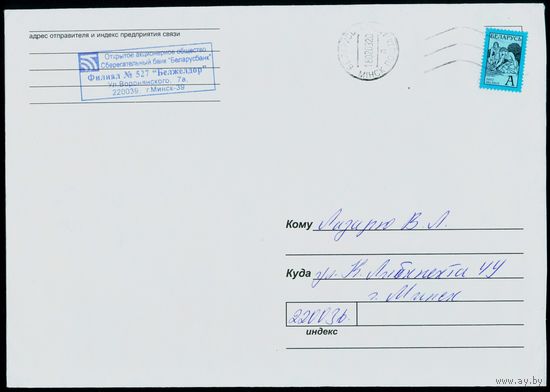 адрес отправителя и индекс предприятия связи
Открытое акционерное общество
Сберегательный банк "Беларусбанк"
Филиал № 527 "Белжелдор"
Ул.Воронянского, 7а,
220039, г.Минск-39
БЕЛАРУСЬ
А
МІНСК
Кому Лазарю В. Л.
Куда ул. К. Либкнехта 44
г. Минск
220036.
индекс
www.ay.by